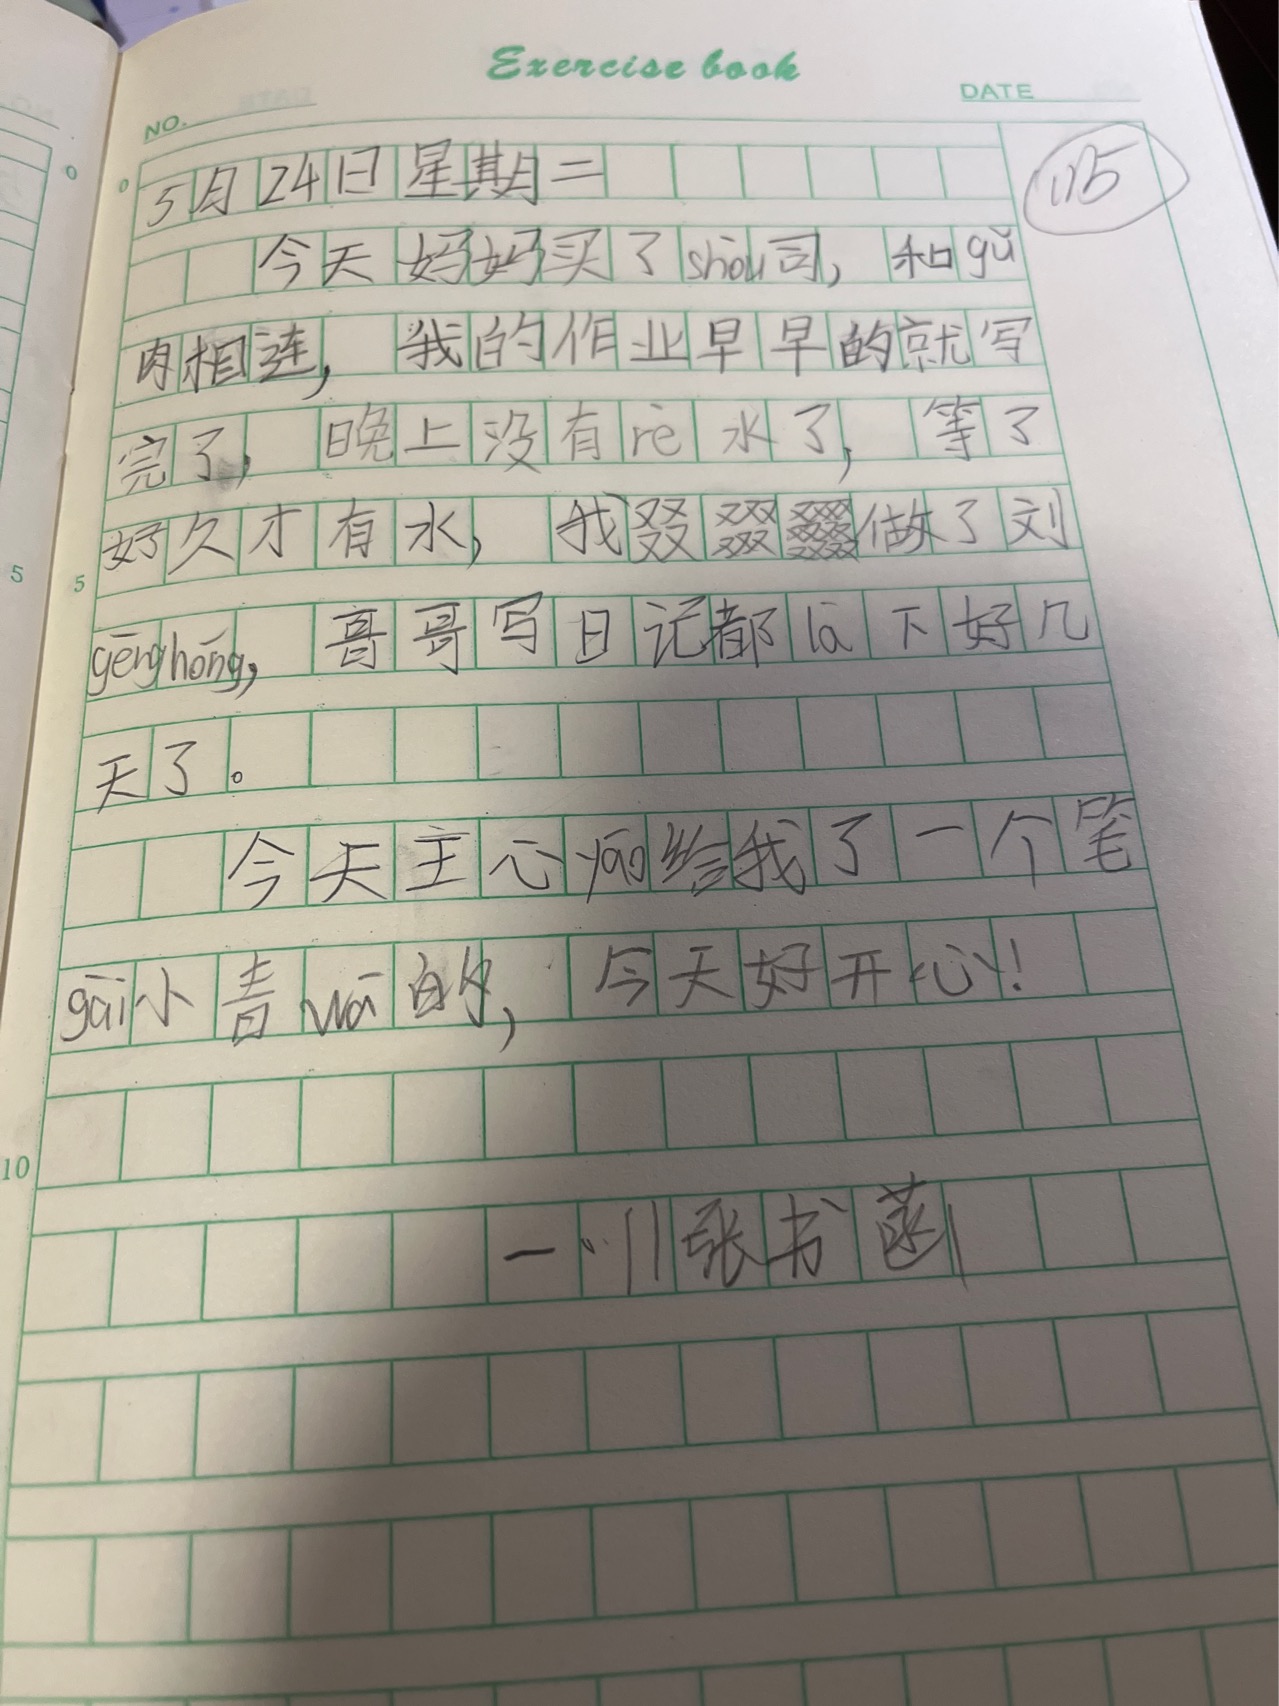 Exercise book
NO.
DATE
5月24日星期二
115
今天妈妈买了shòu司，和gǔ
肉相连，我的作业早早的就写
完了，晚上没有rè水了，等了
好久才有水，我叕做了刘
gēng hóng，哥哥写日记都là下好几
天了。
今天主心yáo给我了一个笔
gài小青wā的，今天好开心！
张书菡
0
0
5
5
10